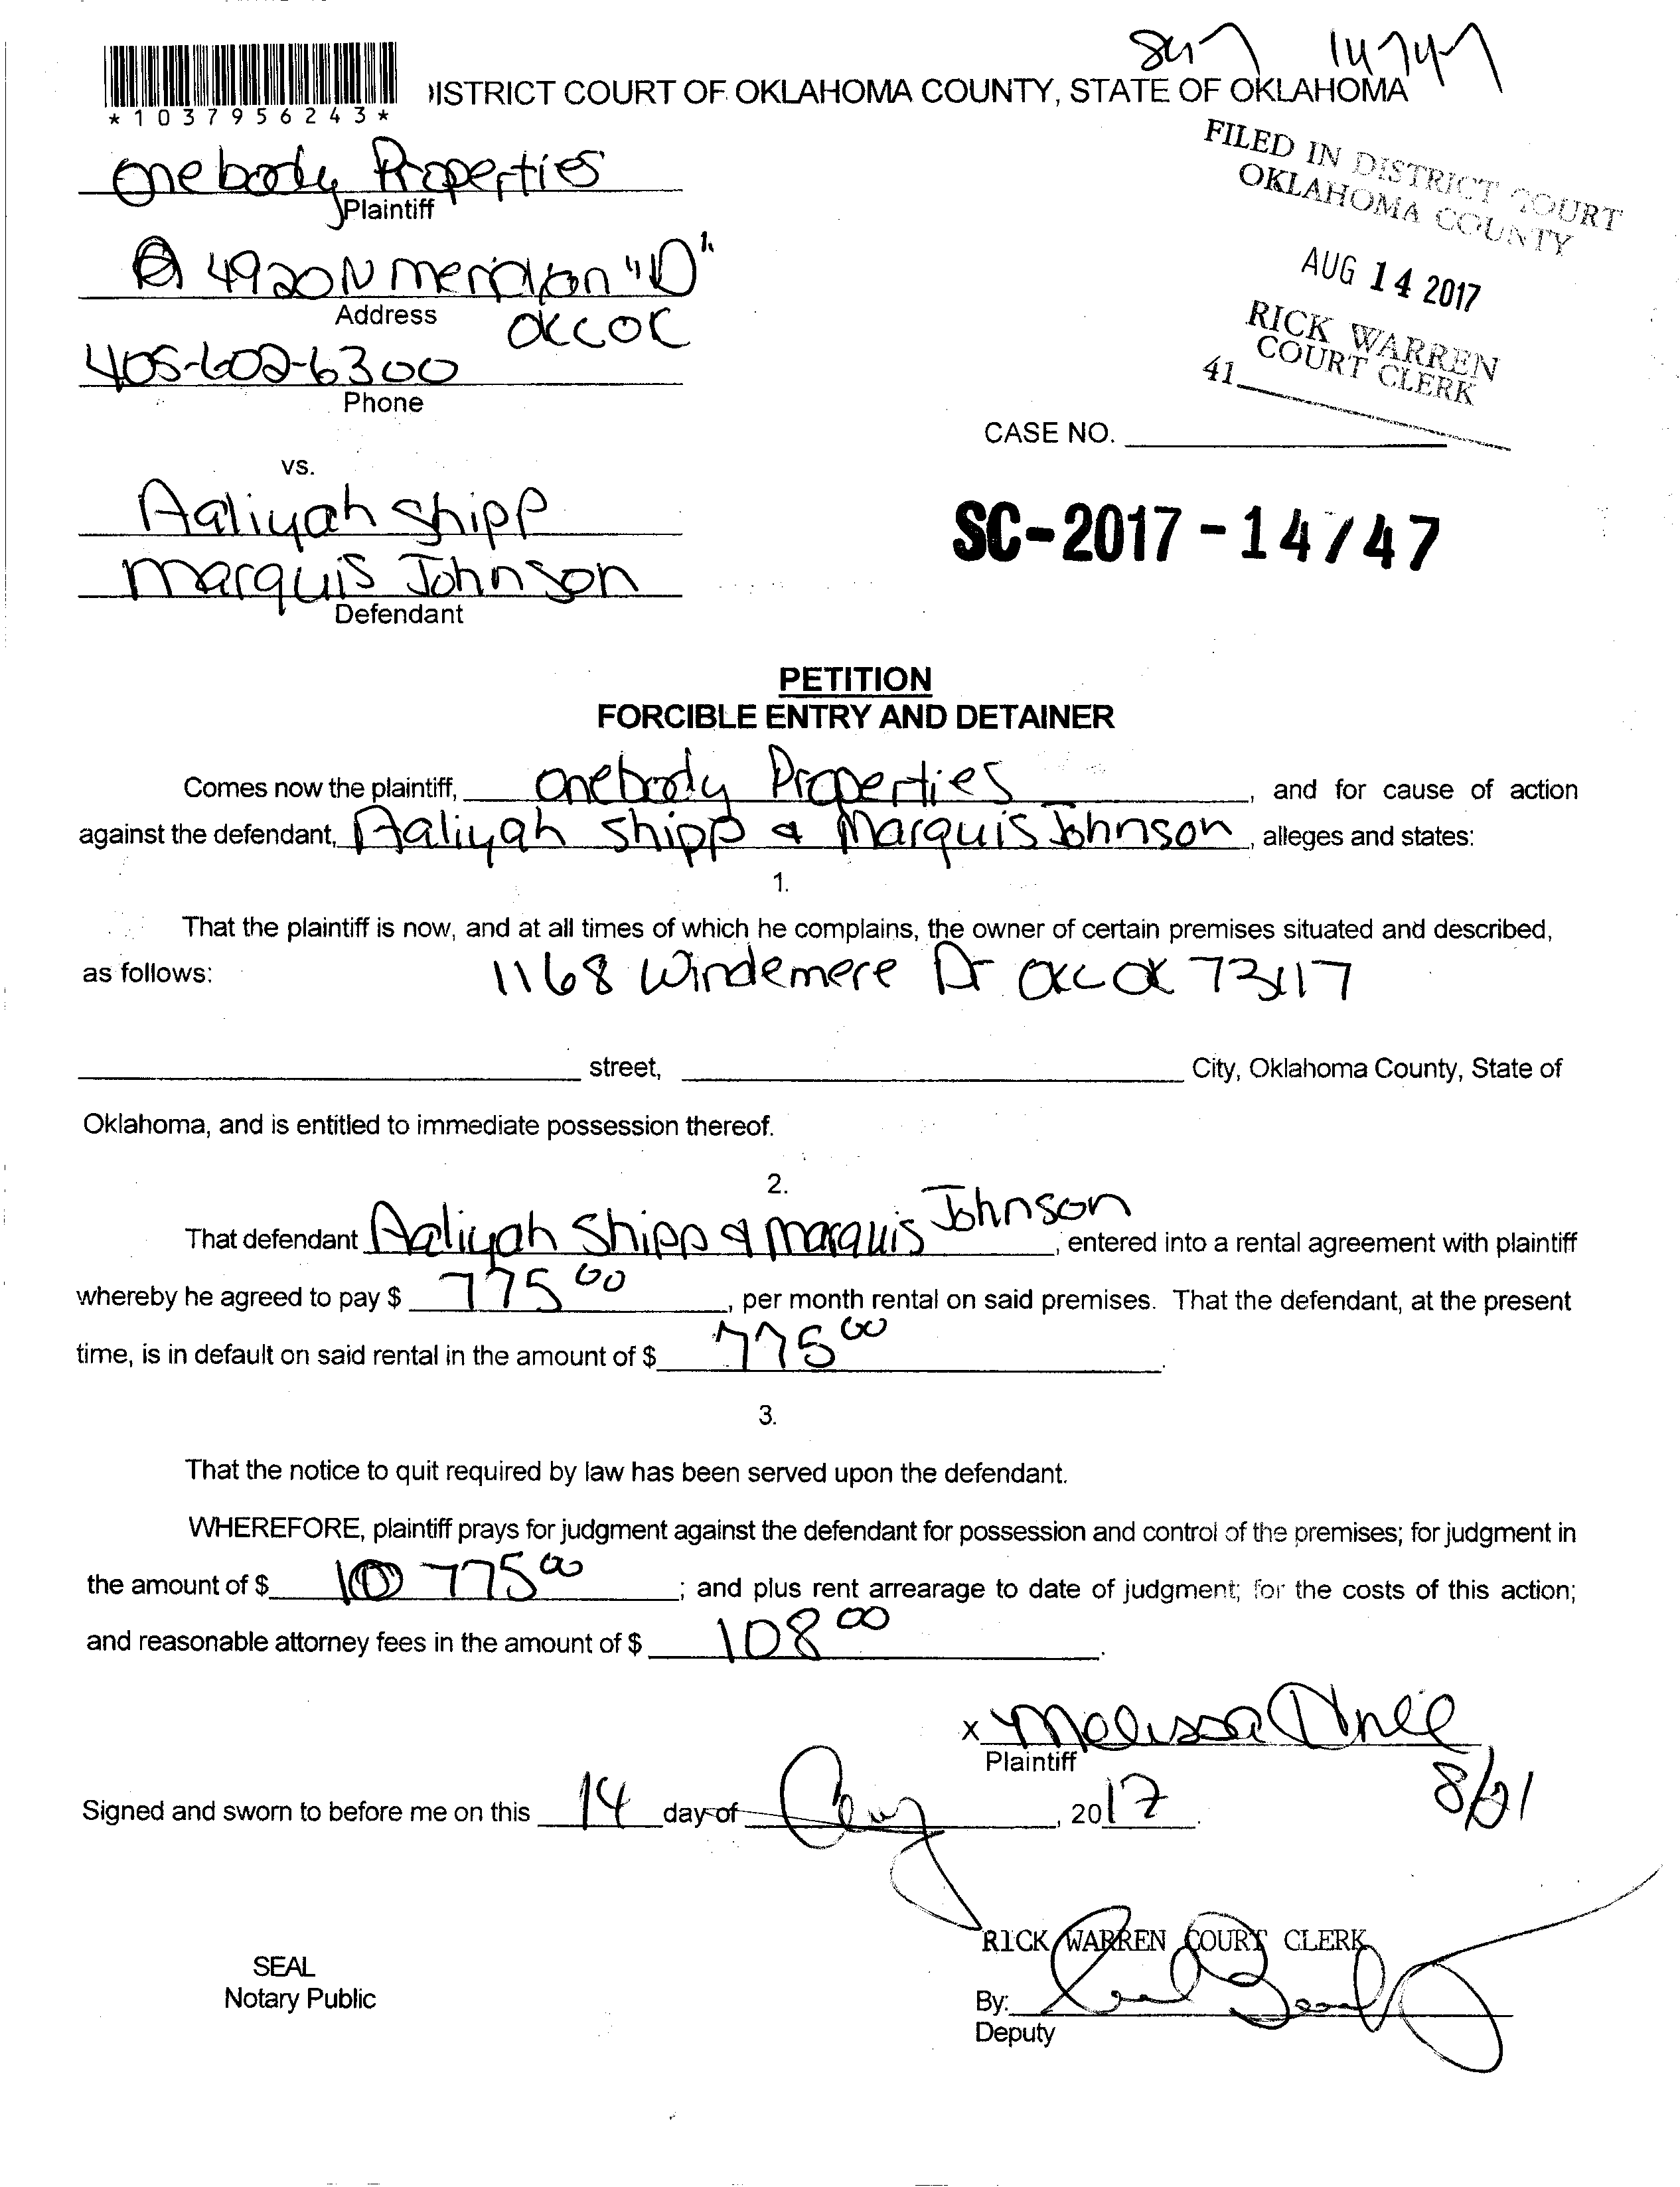 14747
*1037956243*
ISTRICT COURT OF OKLAHOMA COUNTY, STATE OF OKLAHOMA
FILED IN DISTRICT COURT
OKLAHOMA COUNTY
AUG 14 2017
RICK WARREN
COURT CLERK
41
Onebody Properties
Plaintiff
4920 N meridian "D"
Address
OKC OK
405-602-6300
Phone
CASE NO.
vs.
Aaliyah Shipp
Marquis Johnson
Defendant
SC-2017-14747
PETITION
FORCIBLE ENTRY AND DETAINER
Comes now the plaintiff, Onebody Properties, and for cause of action
against the defendant, Aaliyah Shipp & Marquis Johnson, alleges and states:
1.
That the plaintiff is now, and at all times of which he complains, the owner of certain premises situated and described,
as follows: 1168 Windemere Dr OKC OK 73117
street, City, Oklahoma County, State of
Oklahoma, and is entitled to immediate possession thereof.
2.
That defendant Aaliyah Shipp & Marquis Johnson, entered into a rental agreement with plaintiff
whereby he agreed to pay $ 775 00, per month rental on said premises. That the defendant, at the present
time, is in default on said rental in the amount of $ 775 00.
3.
That the notice to quit required by law has been served upon the defendant.
WHEREFORE, plaintiff prays for judgment against the defendant for possession and control of the premises; for judgment in
the amount of $ 775 00; and plus rent arrearage to date of judgment; for the costs of this action;
and reasonable attorney fees in the amount of $ 108 00.
x Melissa
Plaintiff
8/21
Signed and sworn to before me on this 14 day of Aug, 2017.
RICK WARREN COURT CLERK
SEAL
Notary Public
By:
Deputy